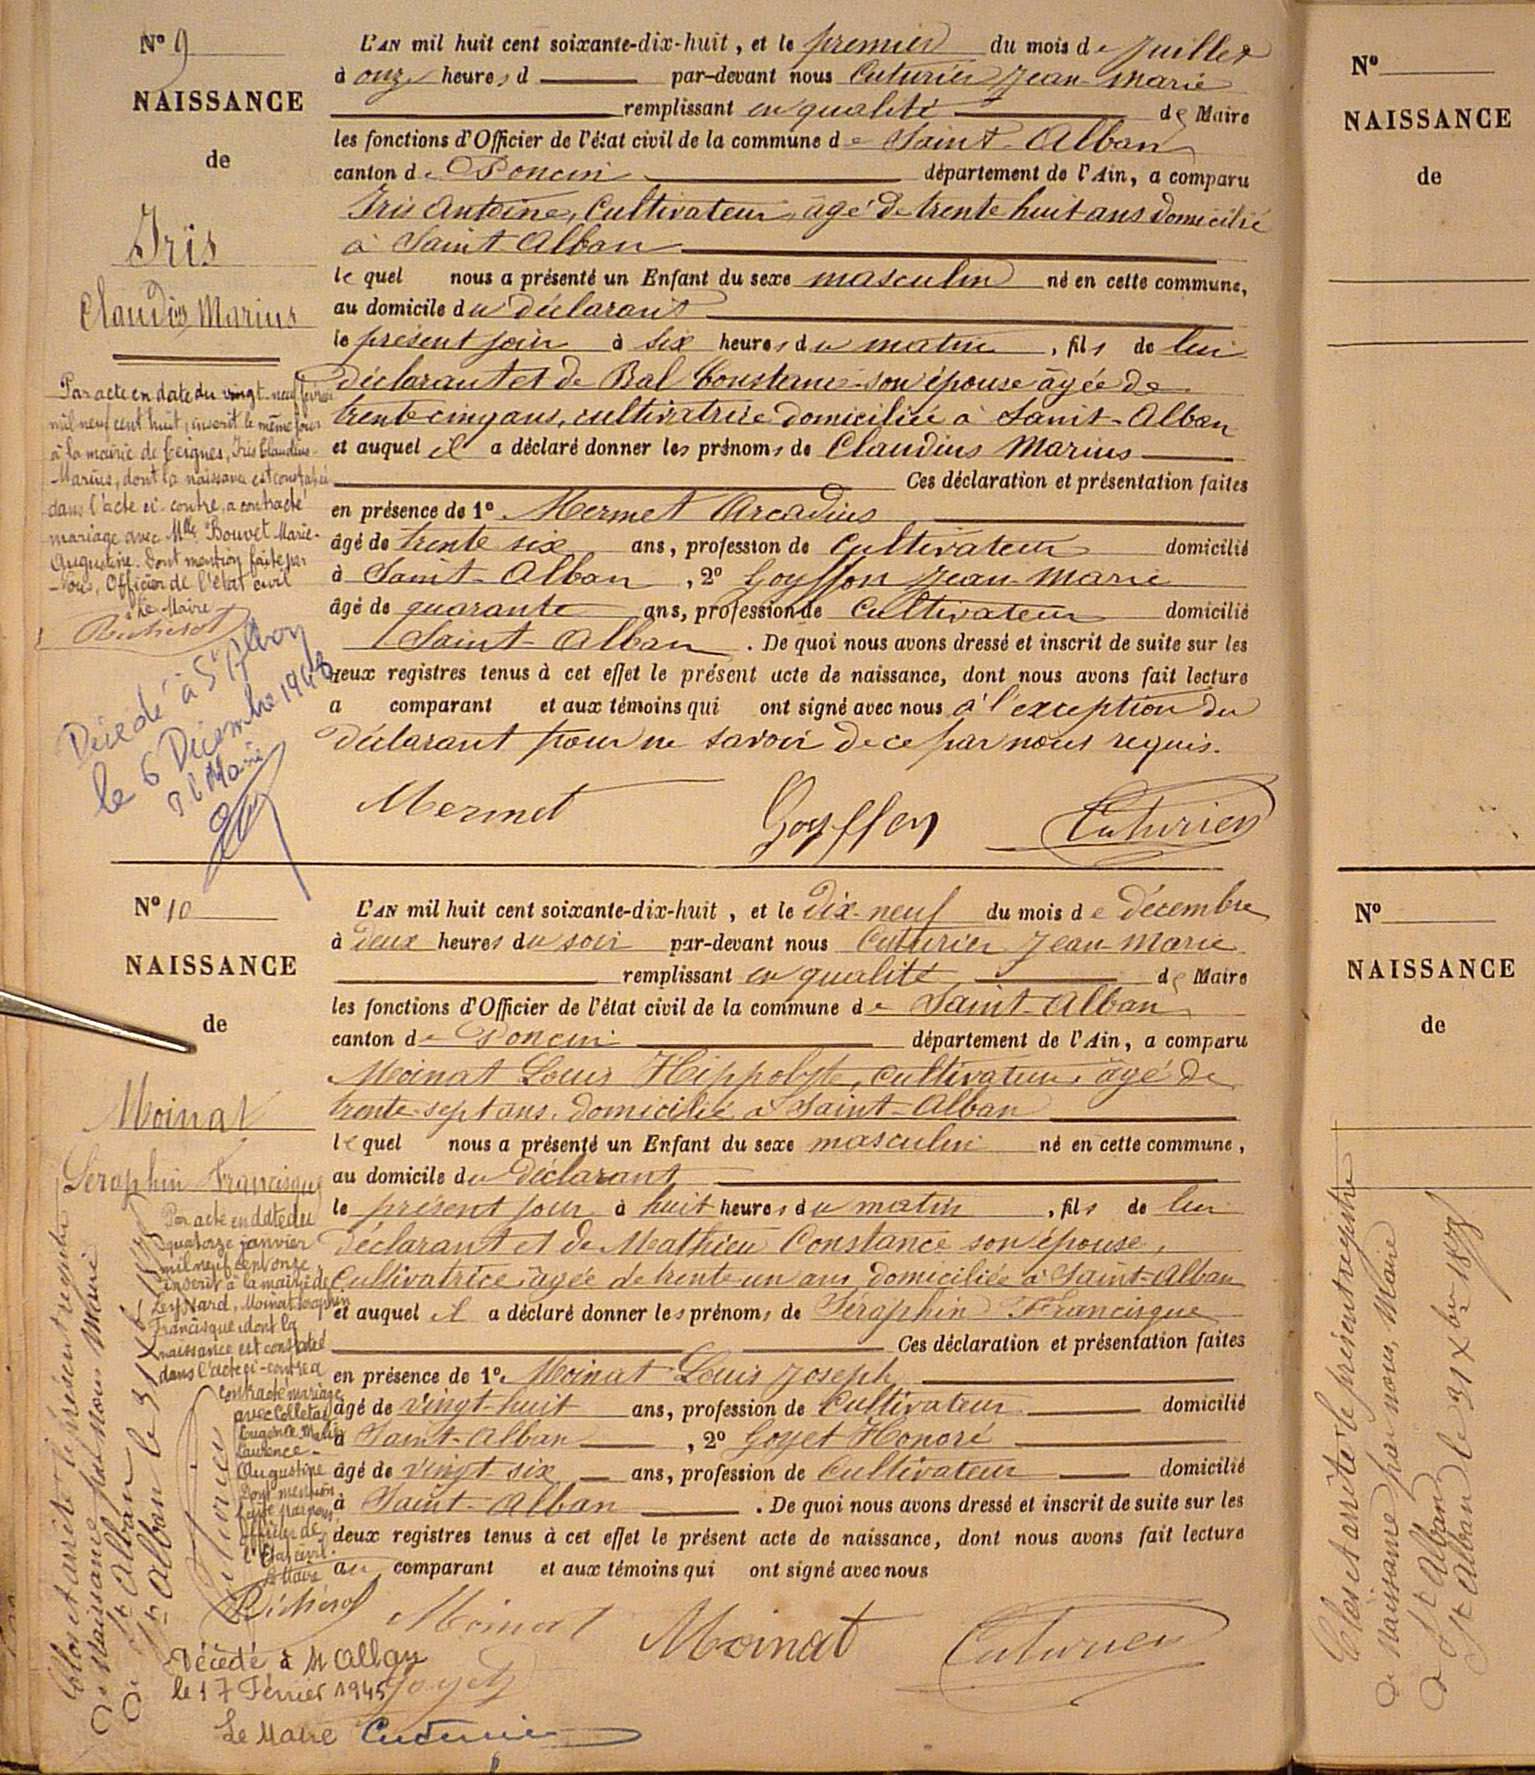 N° 9
NAISSANCE
de
Iris
Claudius Marius
L'AN mil huit cent soixante-dix-huit, et le premier du mois de Juillet
à onze heures d par-devant nous Cuturier Jean-Marie
remplissant en qualité de Maire
les fonctions d'Officier de l'état civil de la commune de Saint-Alban
canton de Poncin département de l'Ain, a comparu
Iris Antoine, Cultivateur, âgé de trente huit ans domicilié
à Saint-Alban
lequel nous a présenté un Enfant du sexe masculin né en cette commune,
au domicile du déclarant
le présent jour à six heures du matin, fils de lui
déclarant et de Bal Constance son épouse âgée de
trente cinq ans, cultivatrice domiciliée à Saint-Alban
et auquel il a déclaré donner les prénoms de Claudius Marius
Ces déclaration et présentation faites
en présence de 1° Mermet Arcadius
âgé de trente six ans, profession de Cultivateur domicilié
à Saint-Alban, 2° Goyffon Jean-Marie
âgé de quarante ans, profession de Cultivateur domicilié
Saint-Alban. De quoi nous avons dressé et inscrit de suite sur les
deux registres tenus à cet effet le présent acte de naissance, dont nous avons fait lecture
a comparant et aux témoins qui ont signé avec nous à l'exception du
déclarant pour ne savoir de ce par nous requis.
Mermet Goyffon Cuturier
Par acte en date du vingt-neuf février
mil neuf cent huit, inscrit le même jour
à la mairie de Leignes, Iris Claudius
Marius, dont la naissance est constatée
dans l'acte ci-contre, a contracté
mariage avec Mlle Bouvet Marie-
Augustine. Dont mention faite par
nous, Officier de l'état civil
Le Maire
Richerot
Décédé à St Alban
le 6 Décembre 194
Le Maire
N° 10
NAISSANCE
de
Moinat
Séraphin Francisque
L'AN mil huit cent soixante-dix-huit, et le dix-neuf du mois de décembre
à deux heures du soir par-devant nous Cuturier Jean-Marie
remplissant en qualité de Maire
les fonctions d'Officier de l'état civil de la commune de Saint-Alban
canton de Poncin département de l'Ain, a comparu
Moinat Louis Hippolyte, cultivateur, âgé de
trente-sept ans, domicilié à Saint-Alban
lequel nous a présenté un Enfant du sexe masculin né en cette commune,
au domicile du déclarant
le présent jour à huit heures du matin, fils de lui
déclarant et de Mathieu Constance son épouse,
Cultivatrice, âgée de trente-un ans, domiciliée à Saint-Alban
et auquel il a déclaré donner les prénoms de Séraphin Francisque
Ces déclaration et présentation faites
en présence de 1° Moinat Louis Joseph
âgé de vingt-huit ans, profession de Cultivateur domicilié
à Saint-Alban, 2° Goyet Honoré
âgé de vingt-six ans, profession de Cultivateur domicilié
à Saint-Alban. De quoi nous avons dressé et inscrit de suite sur les
deux registres tenus à cet effet le présent acte de naissance, dont nous avons fait lecture
au comparant et aux témoins qui ont signé avec nous
Moinat Moinat Cuturier
Goyet
Par acte en date du
quatorze janvier
mil neuf cent onze,
inscrit à la mairie de
Leyssard, Moinat Séraphin
Francisque, dont la
naissance est constatée
dans l'acte ci-contre a
contracté mariage
avec Colletaz
Eugénie Marie
Laurence
Augustine
Dont mention
faite par nous
Officier de
l'État civil.
Le Maire
Richerot
Décédé à St Alban
le 17 Février 1945
Le Maire Cuturier
Clos et arrêté le présent registre
de Naissance par nous Maire
de St Alban
St Alban le 31 Xbre 1878
Cuturier
N°
NAISSANCE
de
N°
NAISSANCE
de
Clos et arrêté le présent registre
de Naissance par nous, Maire
de St Alban
St Alban le 31 Xbre 1878